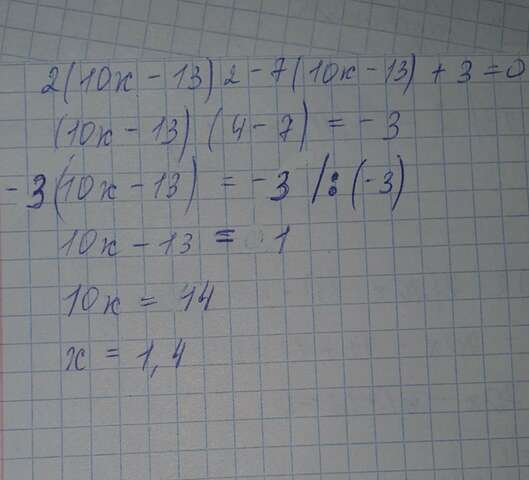 2(10x - 13) 2 - 7(10x - 13) + 3 = 0
(10x - 13) (4 - 7) = - 3
- 3(10x - 13) = - 3 /: (-3)
10x - 13 = 1
10x = 14
x = 1,4